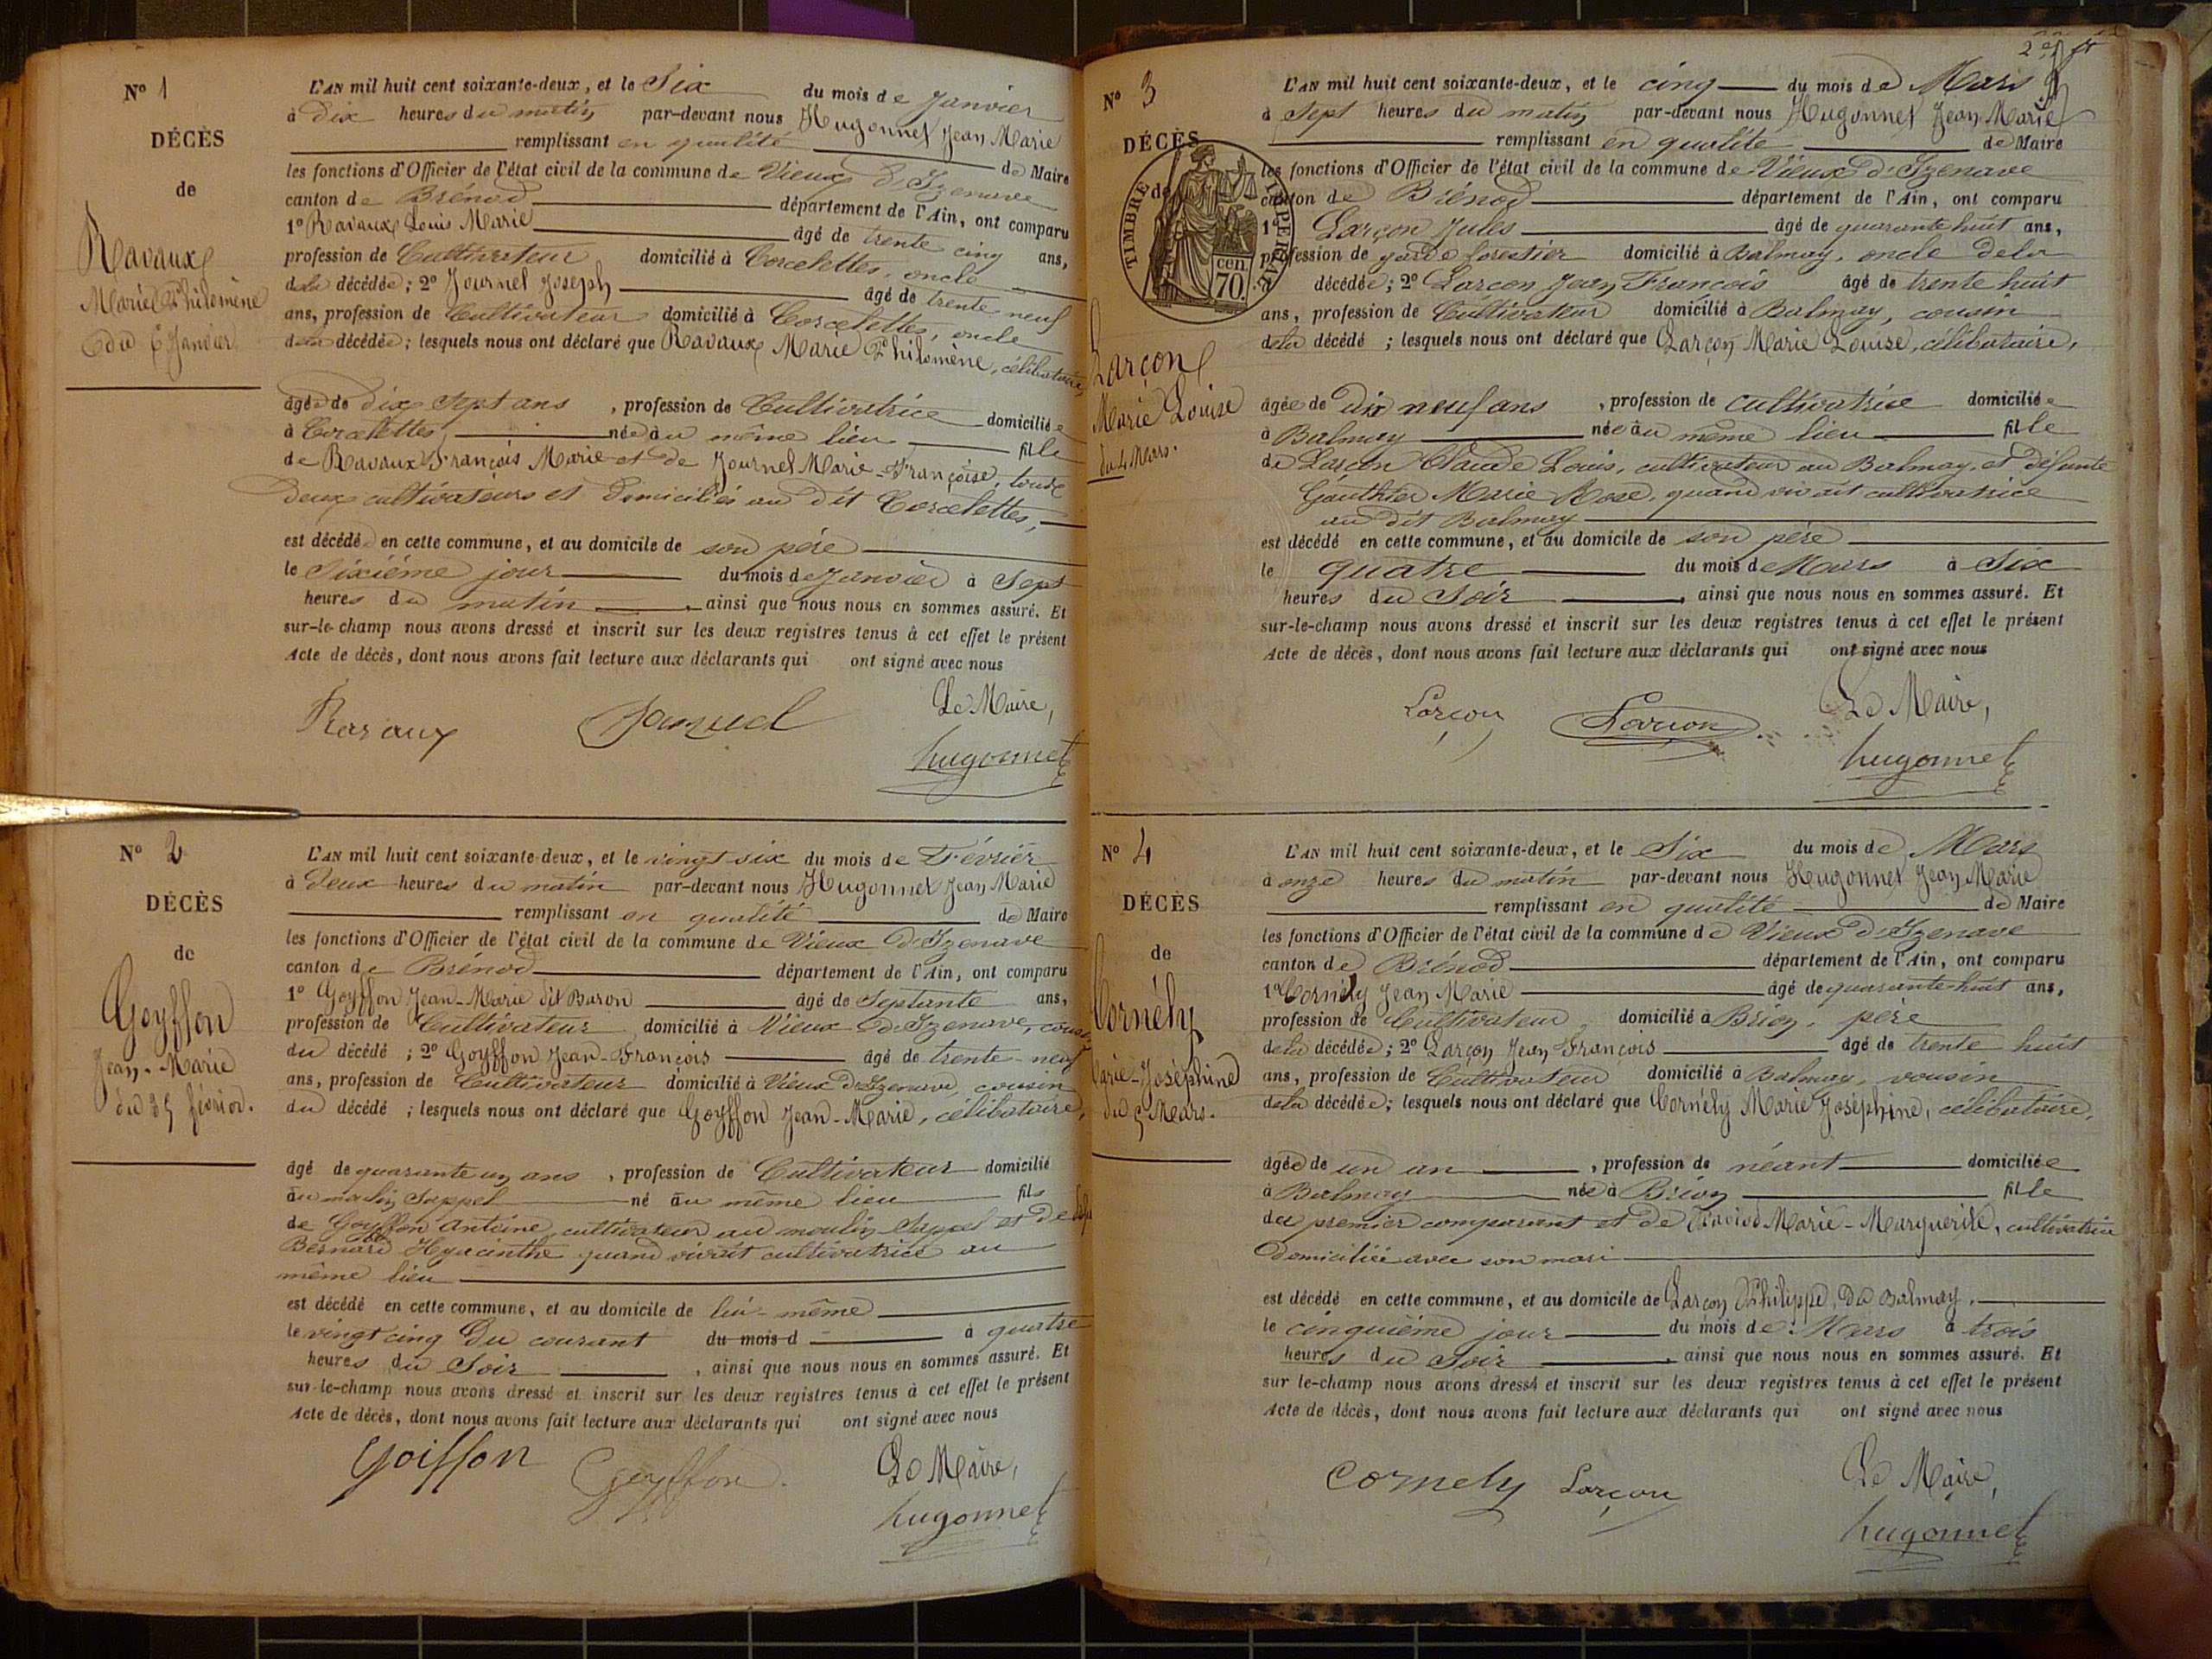 N° 1
DÉCÈS
de
Ravaux
Marie Philomène
du 6 Janvier
L'AN mil huit cent soixante-deux, et le Six du mois de Janvier
à Dix heures du matin par-devant nous Hugonnet Jean Marie
remplissant en qualité de Maire
les fonctions d'Officier de l'état civil de la commune de Vieux d'Izenave
canton de Brénod département de l'Ain, ont comparu
1° Ravaux Louis Marie âgé de trente cinq ans,
profession de Cultivateur domicilié à Corcelettes, oncle
de la décédée; 2° Journel Joseph âgé de trente neuf
ans, profession de Cultivateur domicilié à Corcelettes, oncle
de la décédée; lesquels nous ont déclaré que Ravaux Marie Philomène, célibataire
âgée de dix sept ans, profession de Cultivatrice domiciliée
à Corcelettes née au même lieu fille
de Ravaux François Marie et de Journel Marie-Françoise, tous
deux cultivateurs et domiciliés au dit Corcelettes,
est décédée en cette commune, et au domicile de son père
le Sixième jour du mois de Janvier à Sept
heures du matin, ainsi que nous nous en sommes assuré. Et
sur-le-champ nous avons dressé et inscrit sur les deux registres tenus à cet effet le présent
Acte de décès, dont nous avons fait lecture aux déclarants qui ont signé avec nous
Ravaux
Le Maire,
hugonnet
N° 2
DÉCÈS
de
Goyffon
Jean-Marie
du 25 février.
L'AN mil huit cent soixante-deux, et le vingt six du mois de Février
à deux heures du matin par-devant nous Hugonnet Jean Marie
remplissant en qualité de Maire
les fonctions d'Officier de l'état civil de la commune de Vieux d'Izenave
canton de Brénod département de l'Ain, ont comparu
1° Goyffon Jean-Marie dit Baron âgé de Septante ans,
profession de Cultivateur domicilié à Vieux d'Izenave, cousin
du décédé; 2° Goyffon Jean-François âgé de trente-neuf
ans, profession de Cultivateur domicilié à Vieux d'Izenave, cousin
du décédé; lesquels nous ont déclaré que Goyffon Jean-Marie, célibataire,
âgé de quarante un ans, profession de Cultivateur domicilié
au moulin Sappel né au même lieu fils
de Goyffon Antoine, cultivateur au moulin Sappel et de
Bernard Hyacinthe quand vivait cultivatrice au
même lieu
est décédé en cette commune, et au domicile de lui-même
le vingt cinq du courant du mois d à quatre
heures du Soir, ainsi que nous nous en sommes assuré. Et
sur-le-champ nous avons dressé et inscrit sur les deux registres tenus à cet effet le présent
Acte de décès, dont nous avons fait lecture aux déclarants qui ont signé avec nous
Goiffon Goyffon.
Le Maire,
hugonnet
N° 3
DÉCÈS
de
TIMBRE IMPÉRIAL
70 cen
Larçon
Marie Louise
du 4 Mars.
L'AN mil huit cent soixante-deux, et le cinq du mois de Mars
à Sept heures du matin par-devant nous Hugonnet Jean Marie
remplissant en qualité de Maire
les fonctions d'Officier de l'état civil de la commune de Vieux d'Izenave
canton de Brénod département de l'Ain, ont comparu
1° Larçon Jules âgé de quarante huit ans,
profession de garde forestier domicilié à Balmay, oncle de la
décédée; 2° Larçon Jean François âgé de trente huit
ans, profession de Cultivateur domicilié à Balmay, cousin
de la décédé; lesquels nous ont déclaré que Larçon Marie Louise, célibataire,
âgée de dix neuf ans, profession de cultivatrice domiciliée
à Balmay née au même lieu fille
de Larçon Claude Louis, cultivateur au Balmay, et défunte
Gauthier Marie Rose, quand vivait cultivatrice
au dit Balmay
est décédé en cette commune, et au domicile de son père
le quatre du mois de Mars à Six
heures du Soir, ainsi que nous nous en sommes assuré. Et
sur-le-champ nous avons dressé et inscrit sur les deux registres tenus à cet effet le présent
Acte de décès, dont nous avons fait lecture aux déclarants qui ont signé avec nous
Larçon Larçon
Le Maire,
hugonnet
N° 4
DÉCÈS
de
Cornély
Marie-Joséphine
du 5 Mars.
L'AN mil huit cent soixante-deux, et le Six du mois de Mars
à onze heures du matin par-devant nous Hugonnet Jean Marie
remplissant en qualité de Maire
les fonctions d'Officier de l'état civil de la commune de Vieux d'Izenave
canton de Brénod département de l'Ain, ont comparu
1° Cornély Jean Marie âgé de quarante huit ans,
profession de Cultivateur domicilié à Brion, père
de la décédée; 2° Larçon Jean François âgé de trente huit
ans, profession de Cultivateur domicilié à Balmay, voisin
de la décédée; lesquels nous ont déclaré que Cornély Marie Joséphine, célibataire,
âgée de un an, profession de néant domiciliée
à Balmay née à Brion fille
du premier comparant et de Marie-Marguerite, cultivatrice
domiciliée avec son mari
est décédé en cette commune, et au domicile de Larçon Philippe, du Balmay,
le cinquième jour du mois de Mars à trois
heures du Soir, ainsi que nous nous en sommes assuré. Et
sur le-champ nous avons dressé et inscrit sur les deux registres tenus à cet effet le présent
Acte de décès, dont nous avons fait lecture aux déclarants qui ont signé avec nous
Cornely Larçon
Le Maire,
hugonnet